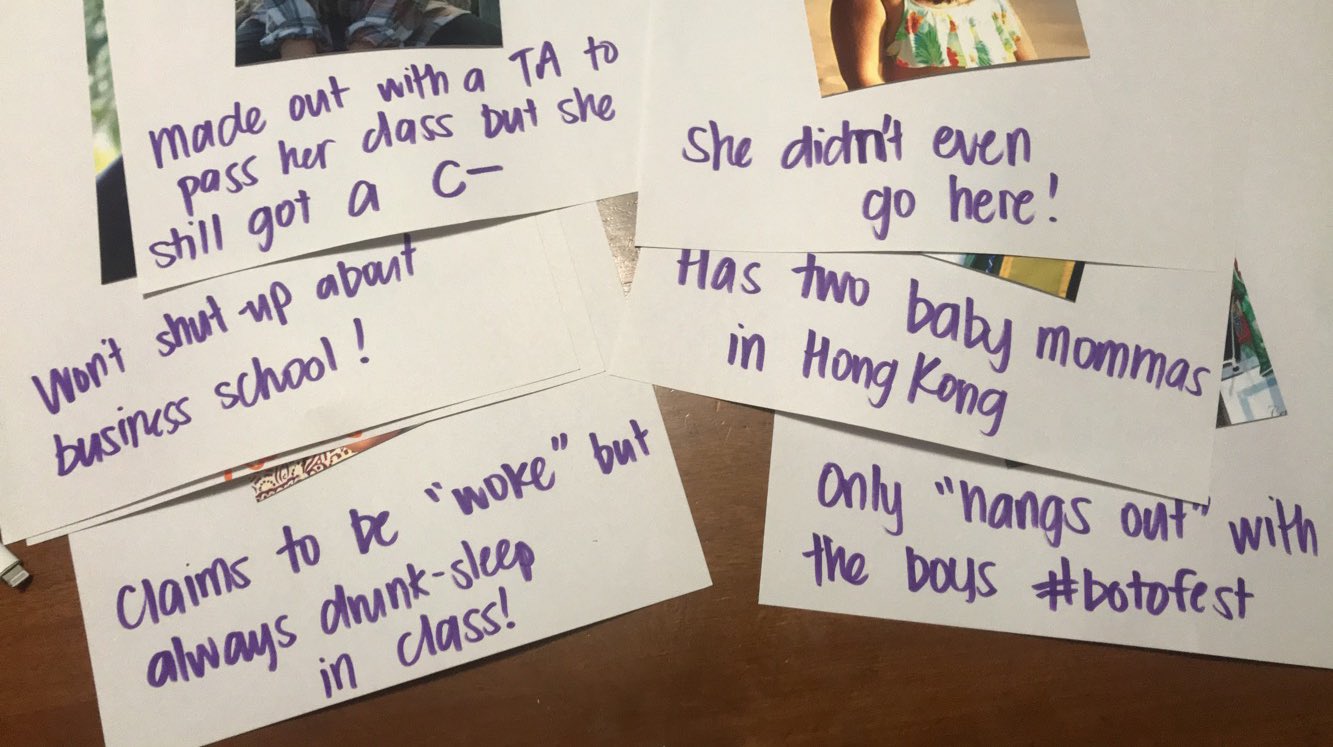 made out with a TA to
pass her class but she
still got a C-
She didn't even
go here!
Won't shut-up about
business school!
Has two baby mommas
in Hong Kong
Claims to be "woke" but
always drunk-sleep
in class!
Only "hangs out" with
the boys #botofest